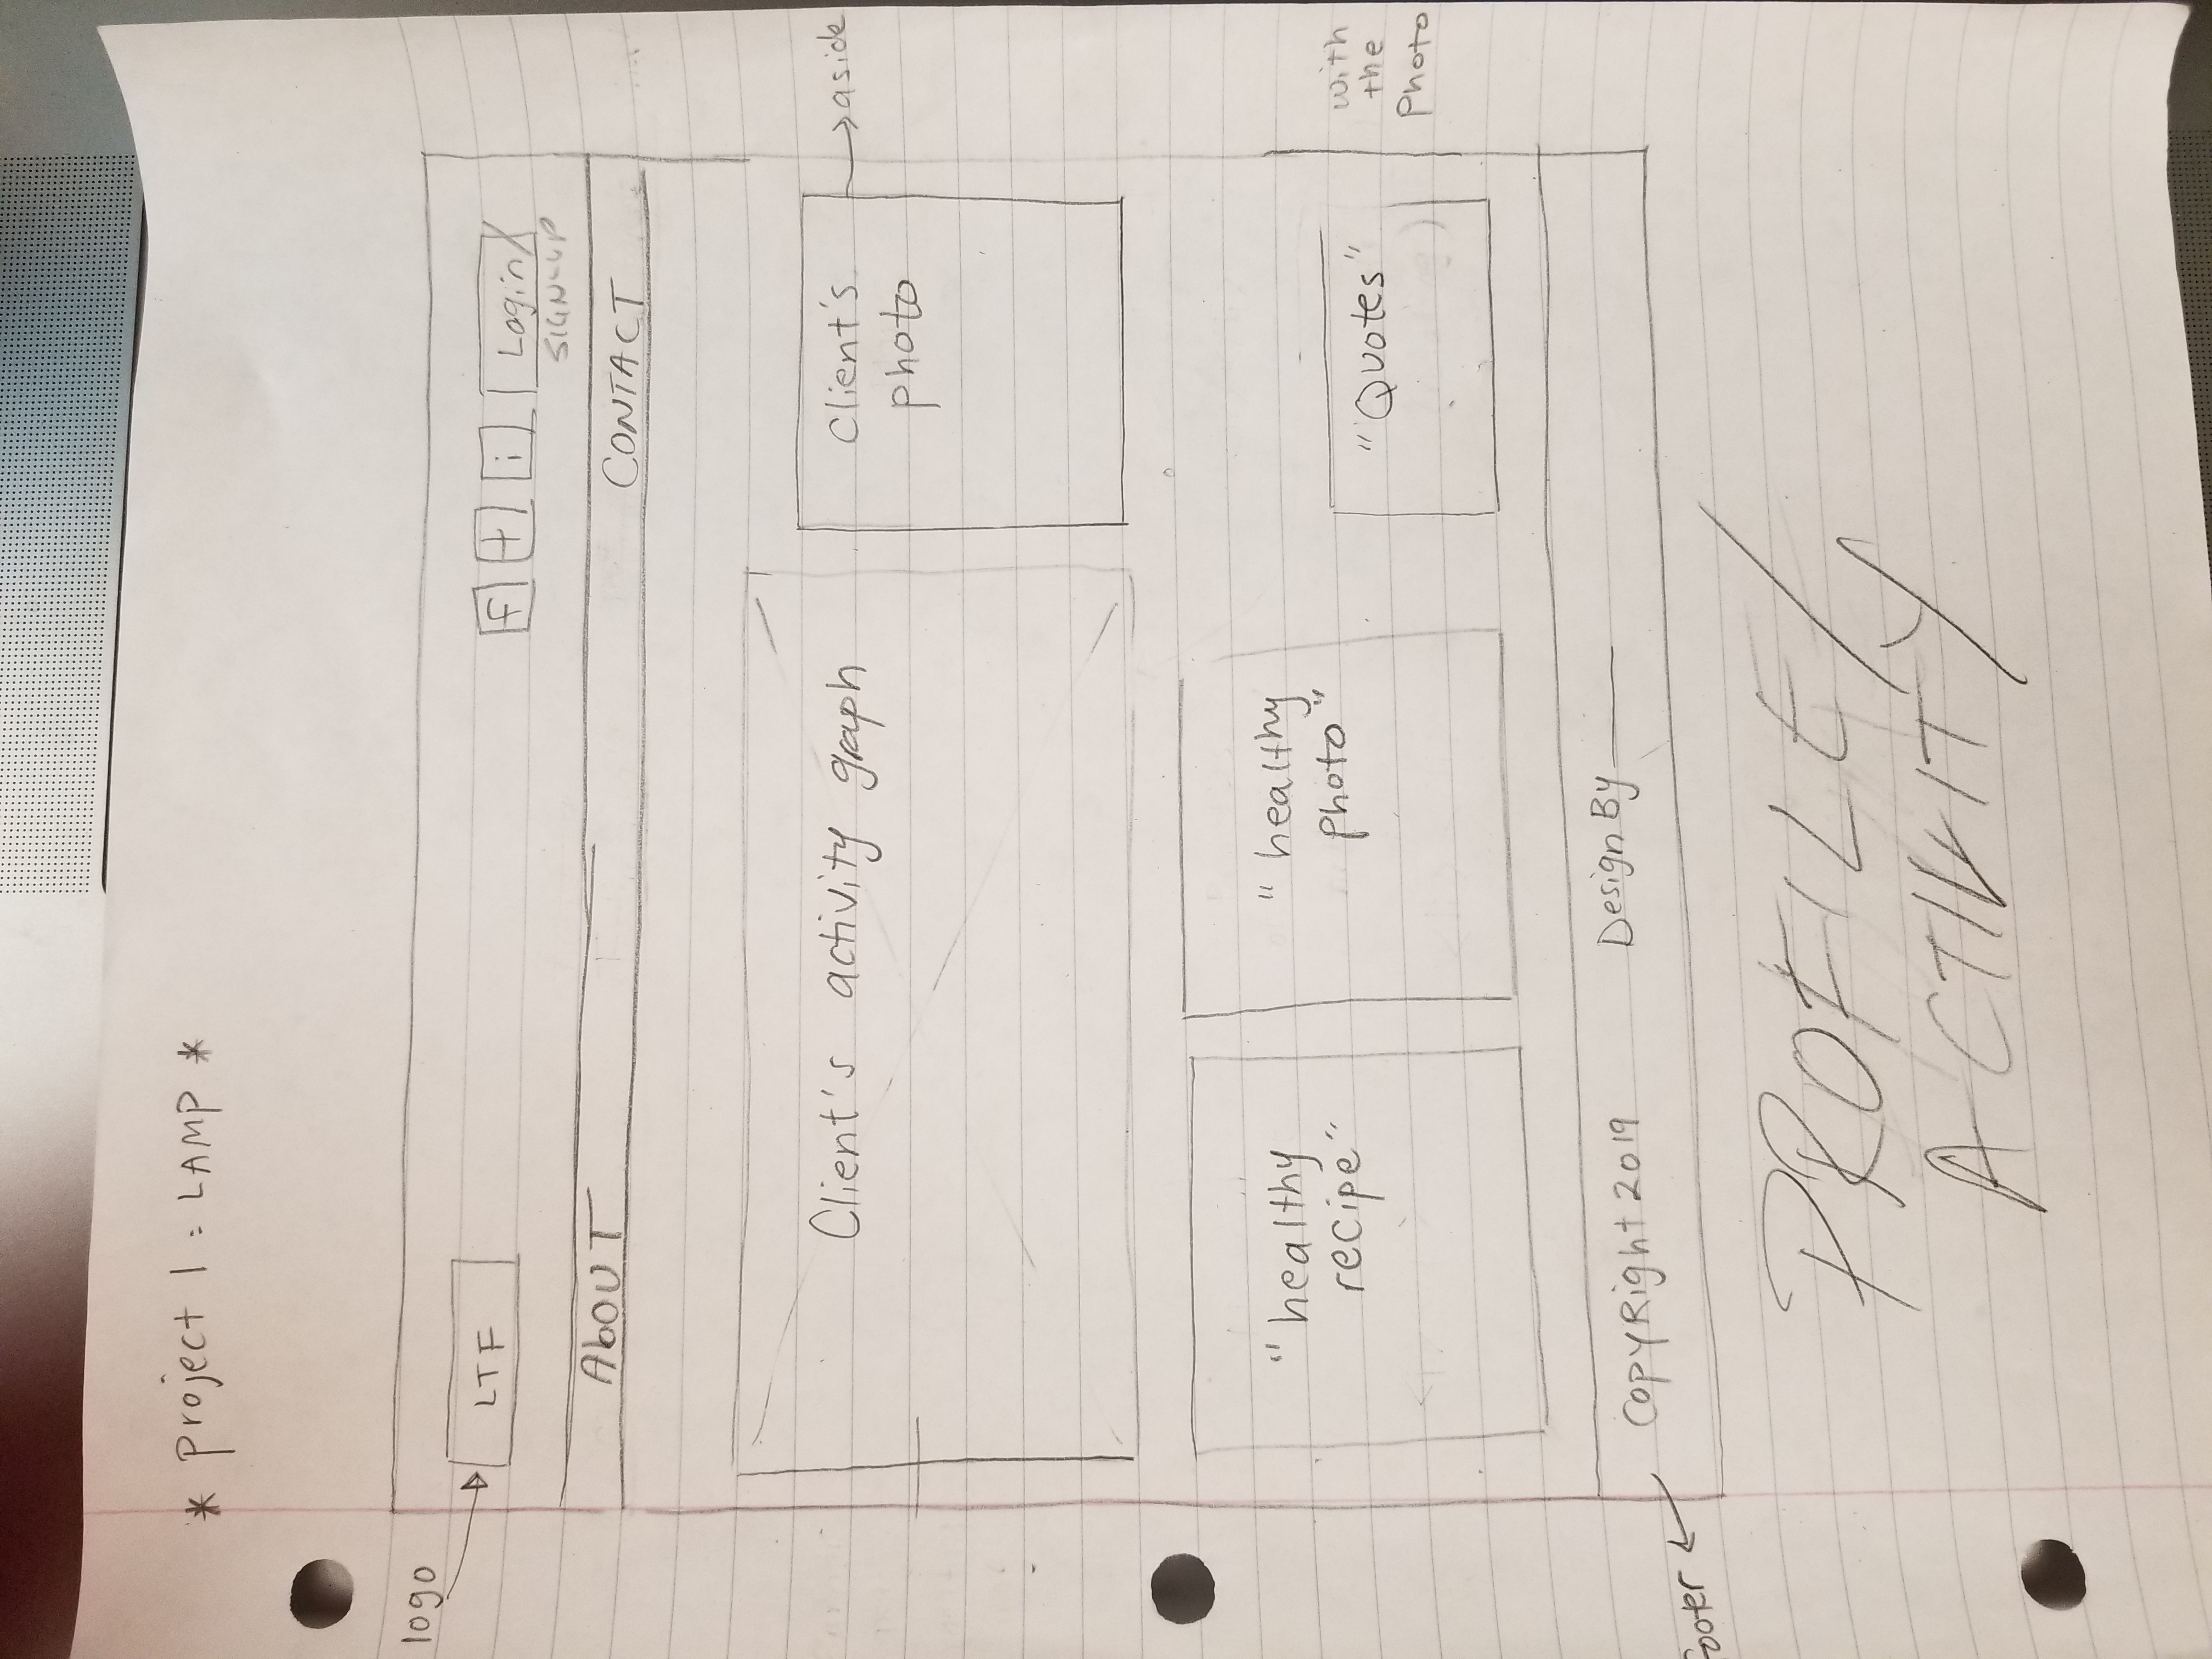 * project 1 : LAMP *
logo
LTF
f t i Login/
SIGN-UP
AboUT
CONTACT
Client's activity graph
Client's
photo
aside
"healthy
recipe"
"healthy
photo"
"Quotes"
with
the
Photo
CopyRight 2019
Design By
footer
PROFILE/
ACTIVITY